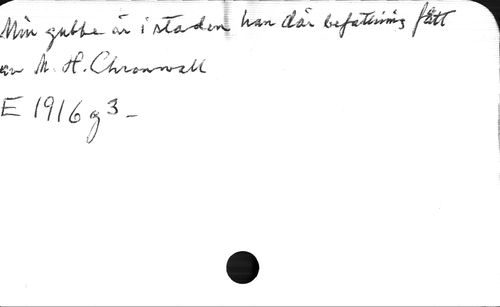 Min gubbe är i staden han där befattning fått
av M. H. Chronwall
E 1916 g 3 -